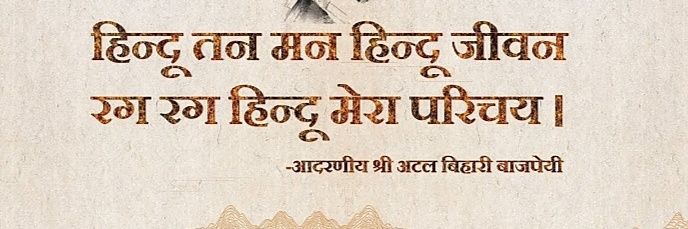 हिन्दू तन मन हिन्दू जीवन
रग रग हिन्दू मेरा परिचय ।
-आदरणीय श्री अटल बिहारी बाजपेयी